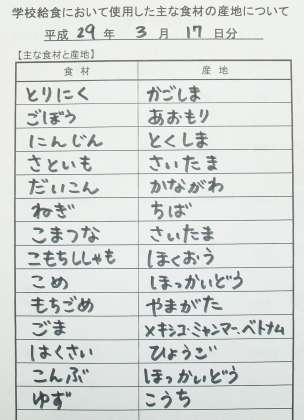 学校給食において使用した主な食材の産地について
平成 29 年 3 月 17 日分
【主な食材と産地】
食材 産地
とりにく かごしま
ごぼう あおもり
にんじん とくしま
さといも さいたま
だいこん かながわ
ねぎ ちば
こまつな さいたま
こもちししゃも ほくおう
こめ ほっかいどう
もちごめ やまがた
ごま メキシコ・ミャンマー、ベトナム
はくさい ひょうご
こんぶ ほっかいどう
ゆず こうち